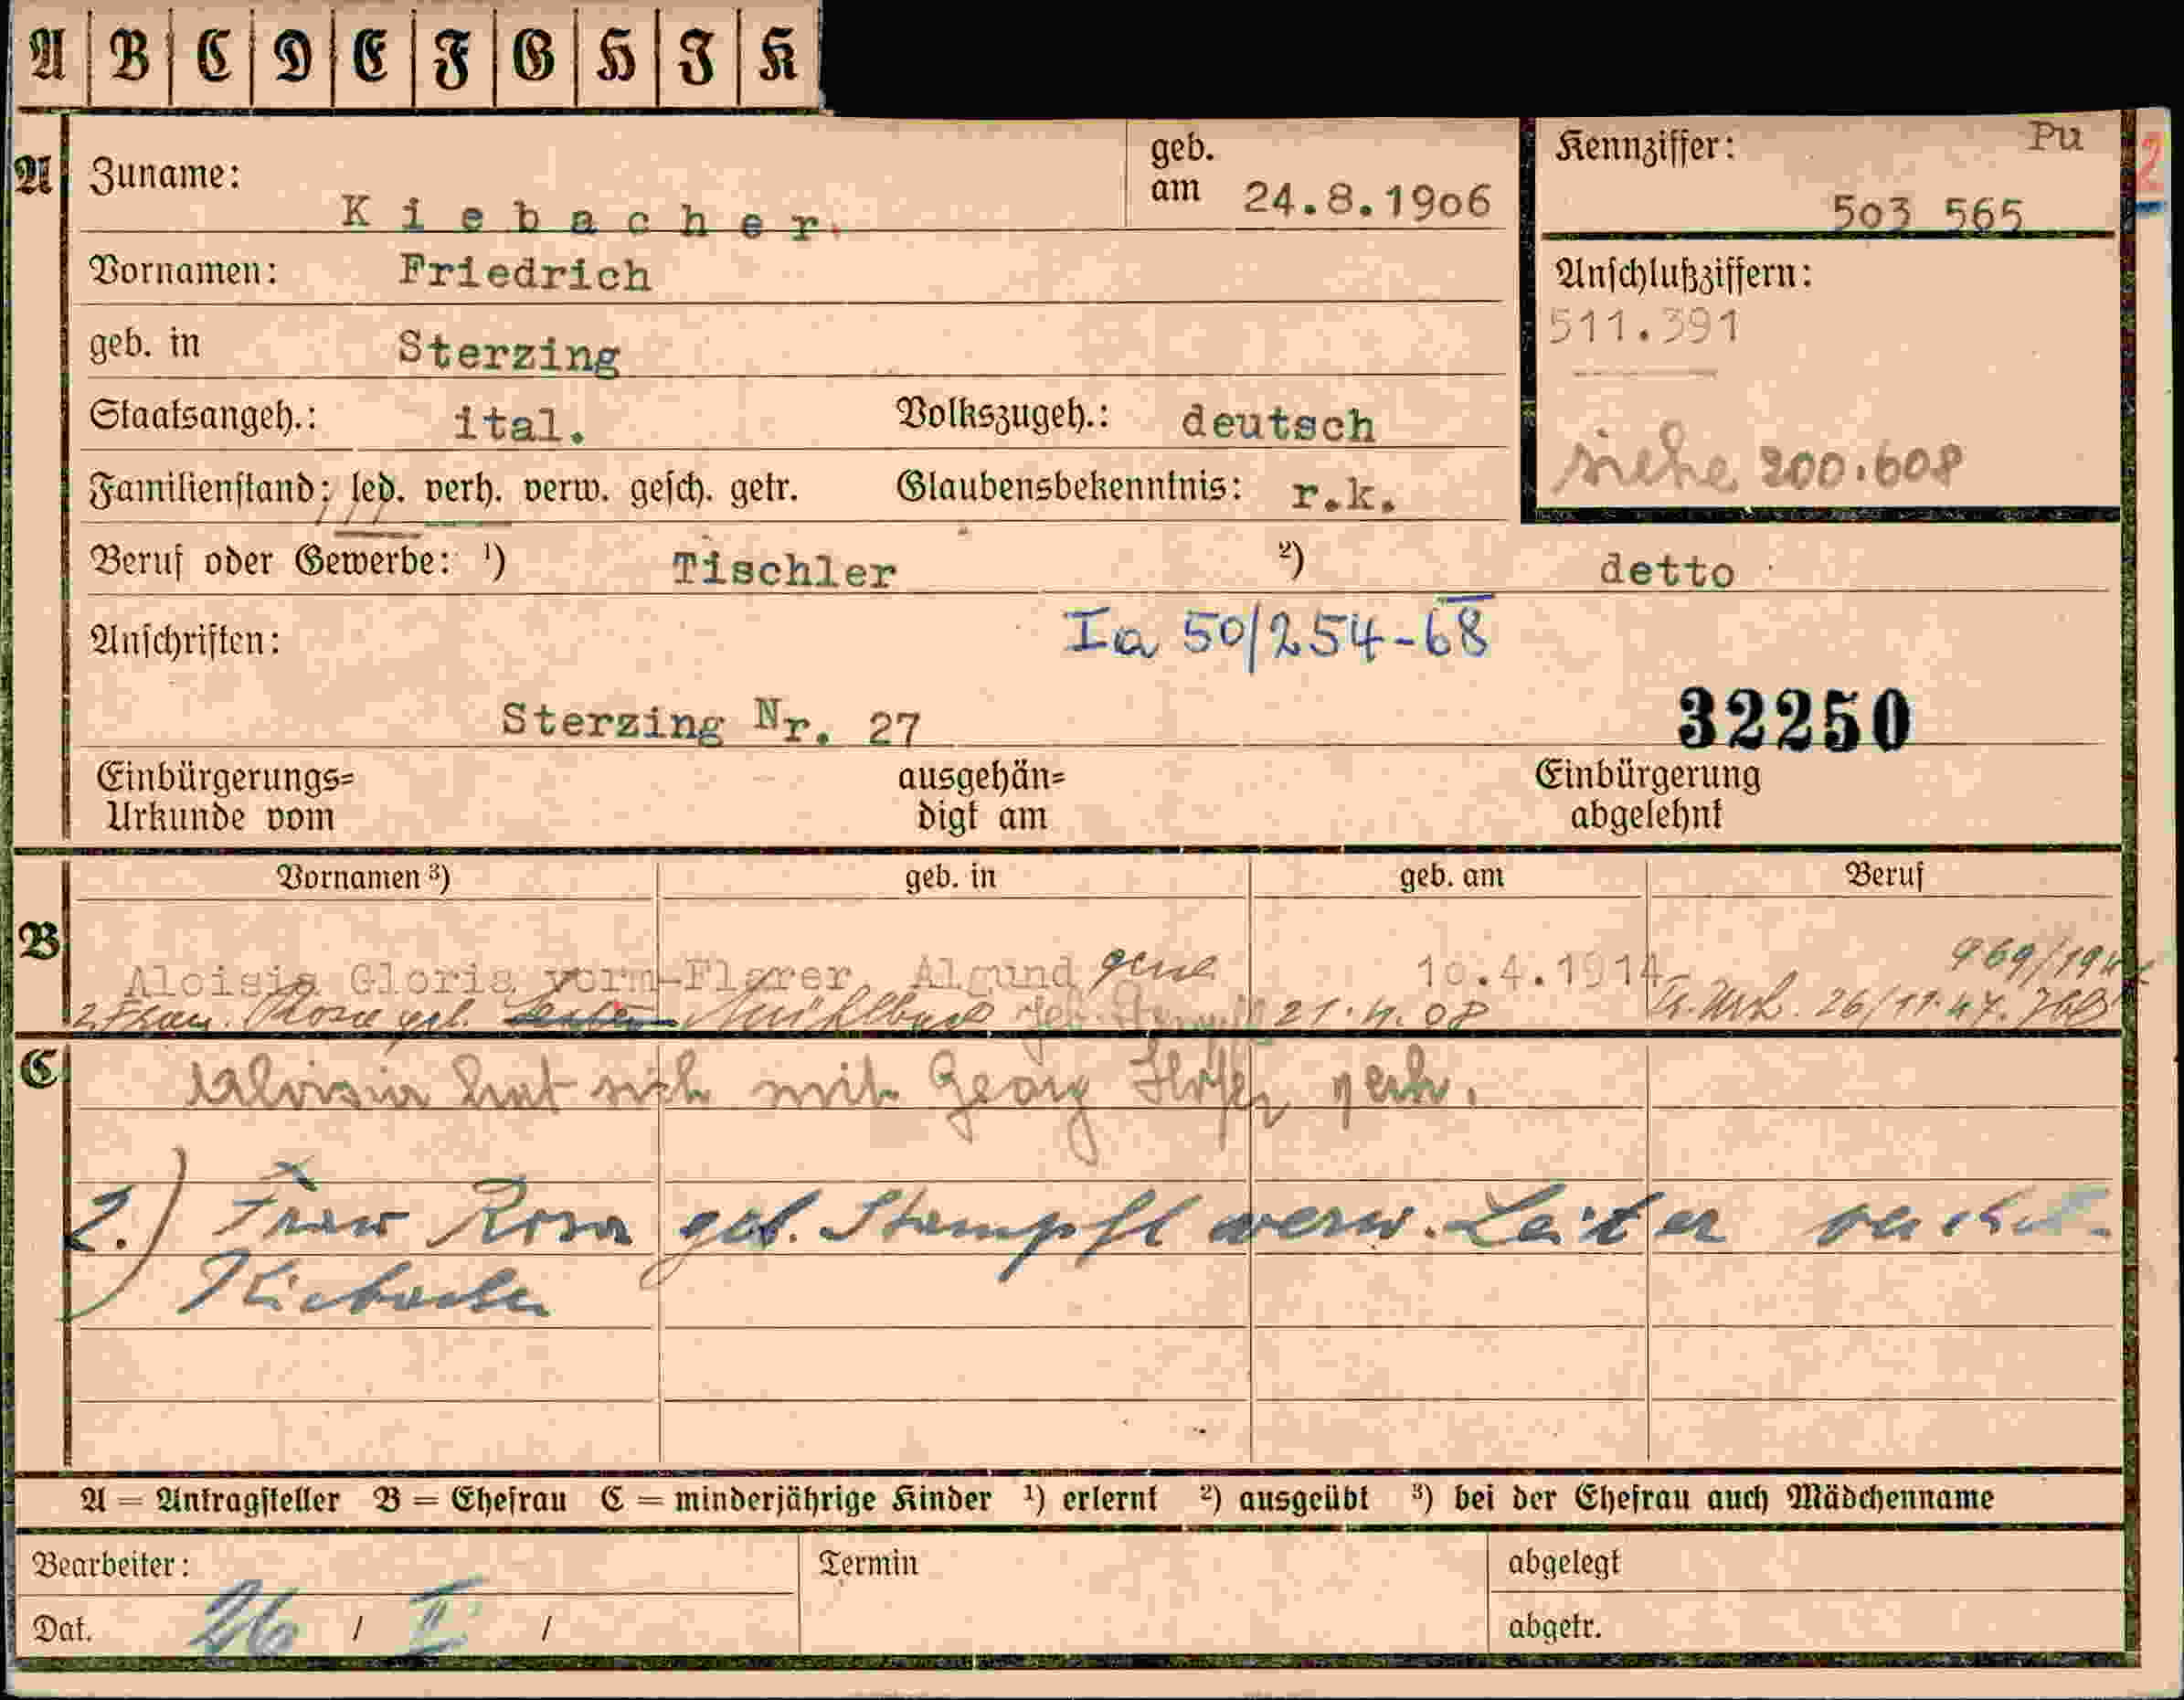 A B C D E F G H I K
A Zuname: Kiebacher. geb. am 24.8.1906
Kennziffer: Pu 503 565
2
Vornamen: Friedrich
Anschlußziffern: 511.391
geb. in Sterzing
Staatsangeh.: ital. Volkszugeh.: deutsch
siehe 200.608
Familienstand: led. verh. verw. gesch. getr. Glaubensbekenntnis: r.k.
Beruf oder Gewerbe: ¹) Tischler ²) detto
Anschriften: Ia 50/254-68
Sterzing Nr. 27 32250
Einbürgerungs= Urkunde vom ausgehän= digt am Einbürgerung abgelehnt
B Vornamen ³) geb. in geb. am Beruf
969/19
Aloisia Gloria vorm-Flarer Algund 10.4.1914
2. Frau. Rosa 21.4.08 26/11.47.
C Aloisia hat sich mit Georg Hofer verh.
2.) Frau Rosa geb. Stampfl verw. Leiter
Kiebacher
A = Antragsteller B = Ehefrau C = minderjährige Kinder ¹) erlernt ²) ausgeübt ³) bei der Ehefrau auch Mädchenname
Bearbeiter: Termin abgelegt
Dat. 26 / II / abgetr.